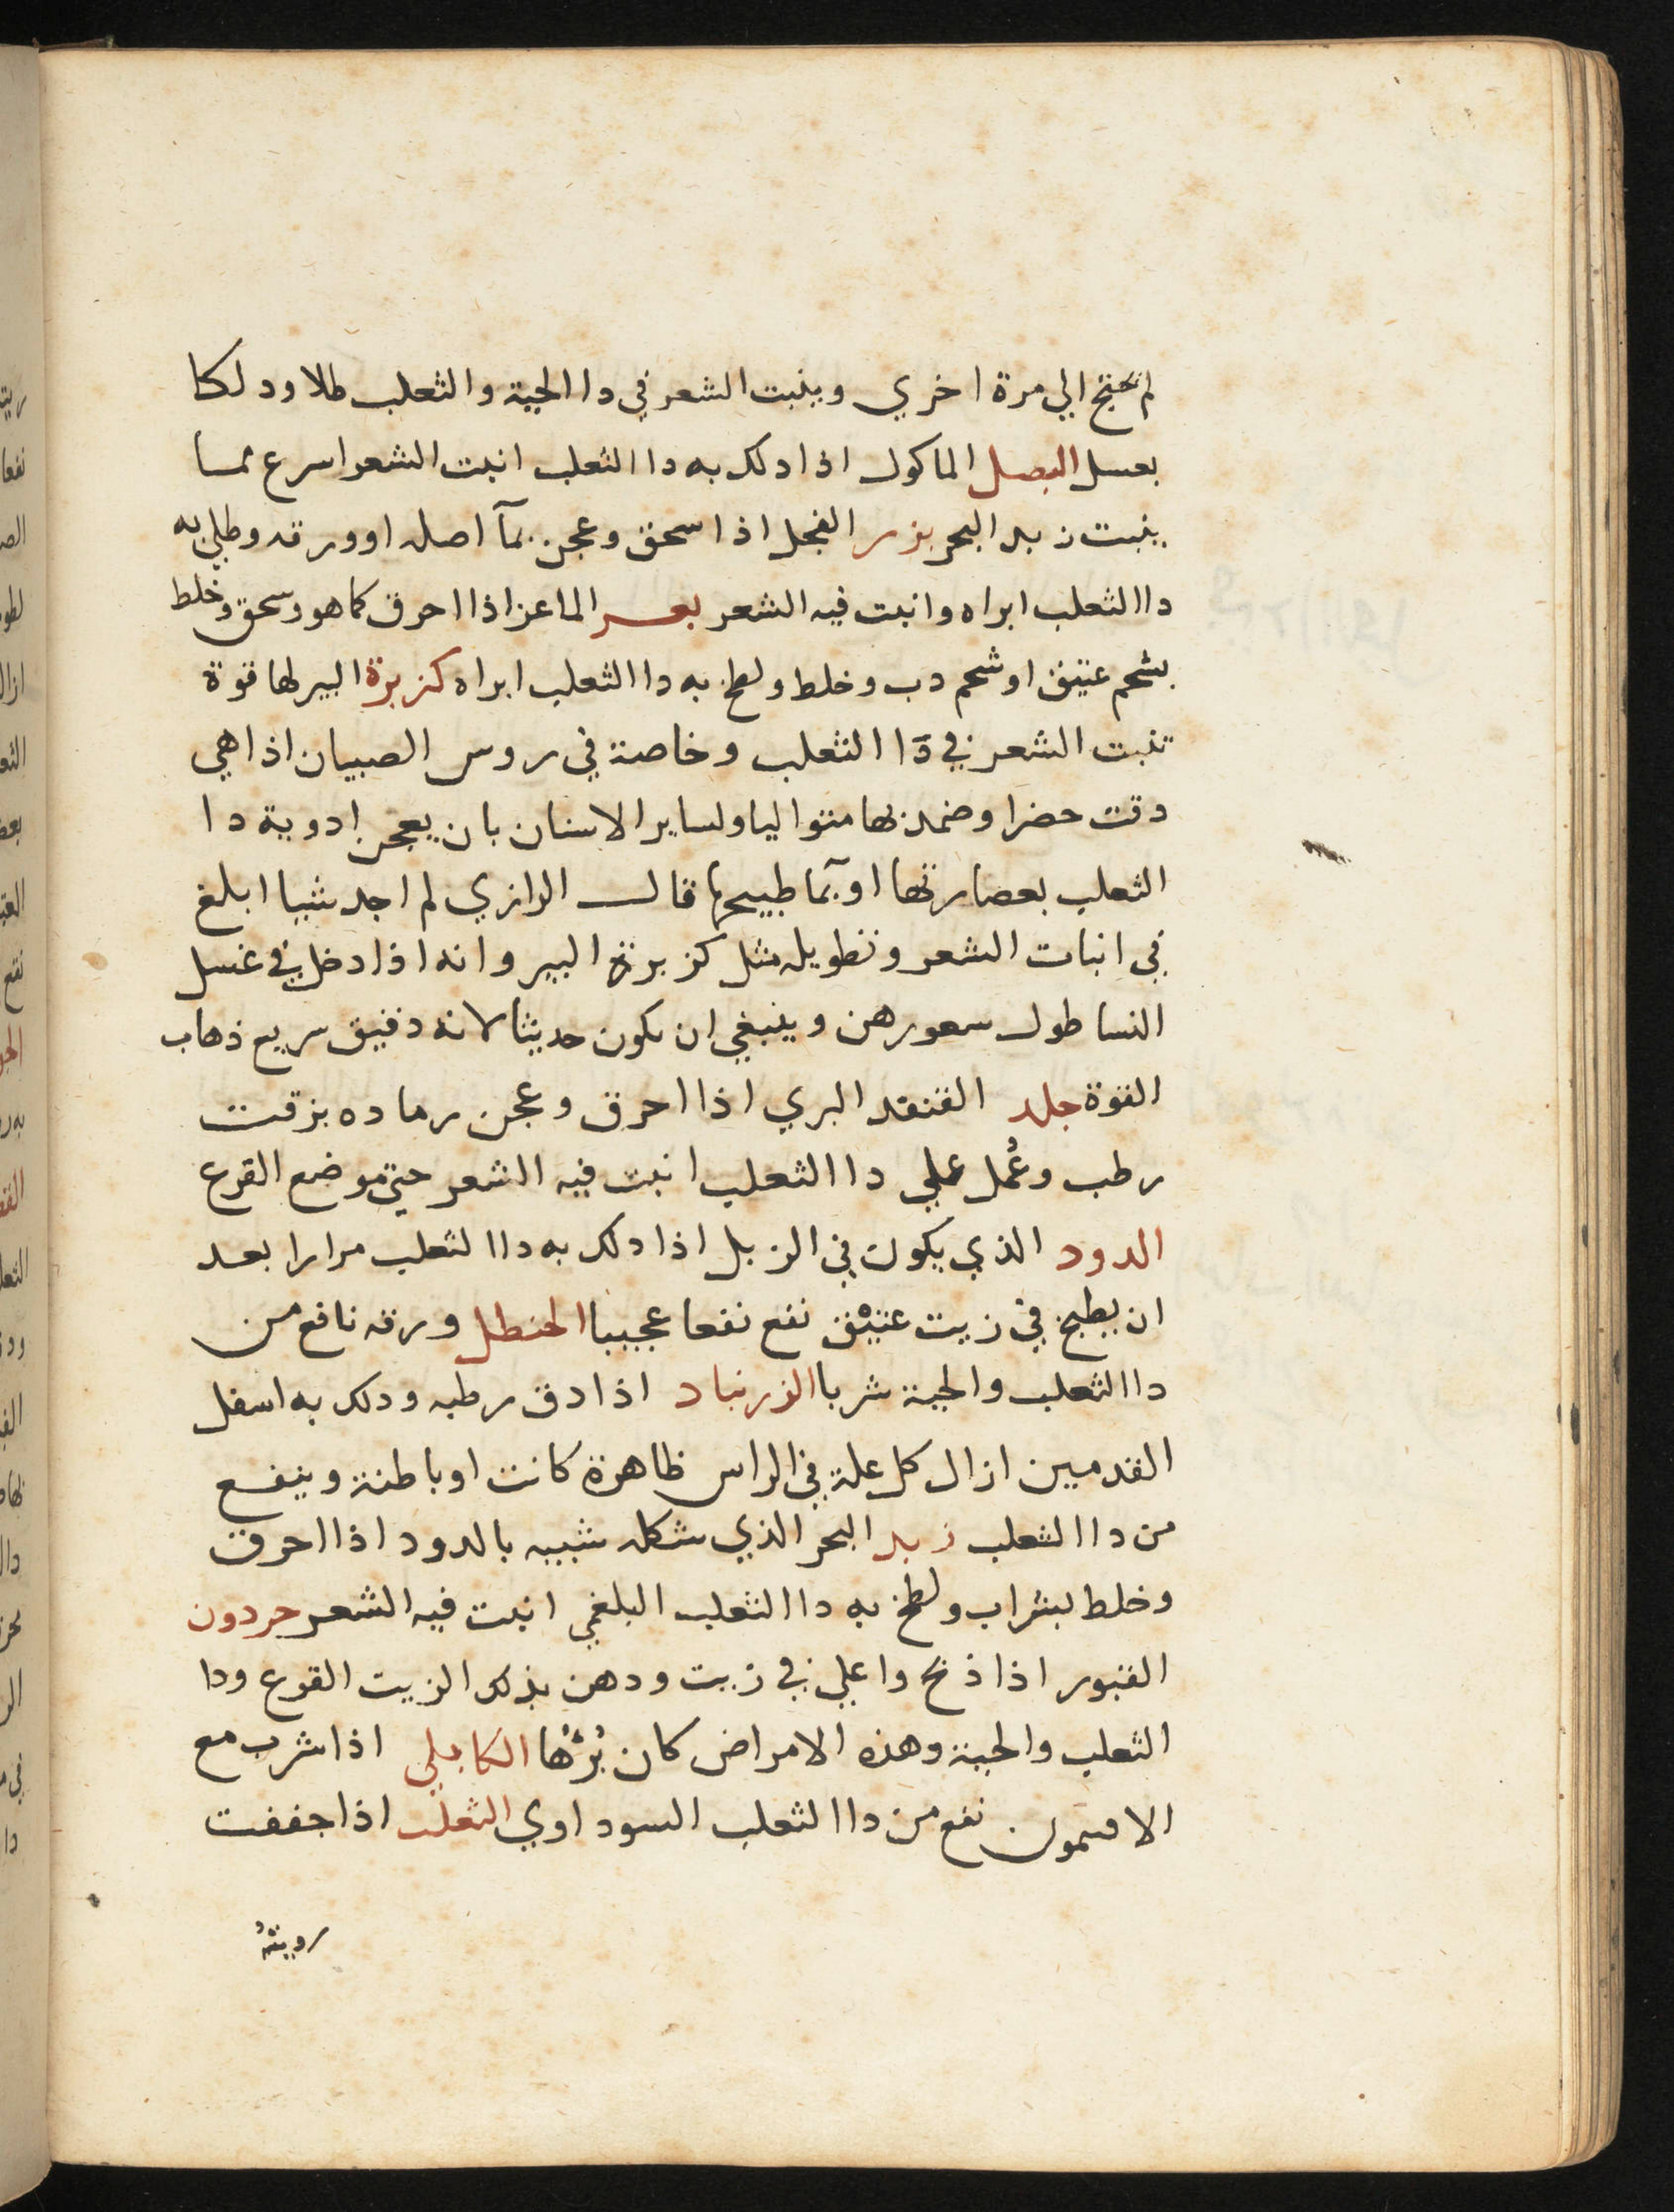 لم تحتج الي مرة اخري وينبت الشعر في دا الحية والثعلب طلا ودلكا
بعسل البصل الماكول اذا دلك به دا الثعلب انبت الشعر اسرع مما
ينبت زبد البحر بزر الفجل اذا سحق وعجن بمآ اصله او ورقه وطلي به
دا الثعلب ابراه وانبت فيه الشعر بعر الماعز اذا احرق كما هو وسحق وخلط
بشحم عتيق او شحم دب وخلط ولطخ به دا الثعلب ابراه كزبرة البير لها قوة
تنبت الشعر في دآ الثعلب وخاصة في روس الصبيان اذا هي
دقت خضرا وضمد بها متواليا ولساير الاسنان بان يعجن ادوية دا
الثعلب بعصارتها او بمآ طبيخها قال الرازي لم اجد شيا ابلغ
في انبات الشعر وتطويله مثل كزبرة البير وانه اذا دخل في غسل
النسا طول سعورهن وينبغي ان يكون حديثا لانه دقيق سريع ذهاب
القوة جلد القنفد البري اذا احرق وعجن رماده بزفت
رطب وعُمل علي دا الثعلب انبت فيه الشعر حتي موضع القرع
الدود الذي يكون في الزبل اذا دلك به دا الثعلب مرارا بعد
ان يطبخ في زيت عتيق نفع نفعا عجيبا الحنطل ورقه نافع من
دا الثعلب والحية شربا الزرنباد اذا دق رطبه ودلك به اسفل
القدمين ازال كل علة في الراس ظاهرة كانت او باطنة وينفع
من دا الثعلب زبد البحر الذي شكله شبيه بالدود اذا احرق
وخلط بشراب ولطخ به دا الثعلب البلغمي انبت فيه الشعر حردون
القبور اذا ذبح واغلي في زيت ودهن بذلك الزيت القرع ودا
الثعلب والحية وهذه الامراض كان بُرئها الكابلي اذا شرب مع
الافتيمون نفع من دا الثعلب السوداوي الثعلب اذا جففت
رويتهُ